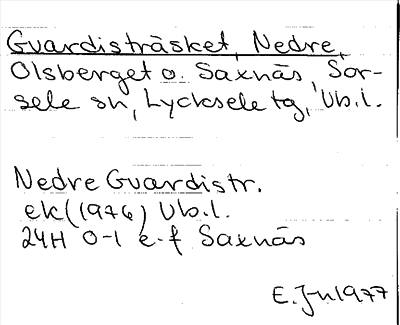 Gvardisträsket, Nedre,
Olsberget o. Saxnäs, Sor-
sele sn, Lycksele tg, Vb.l.
Nedre Gvardistr.
ek (1976) Vb.l.
24H 0-1 e-f Saxnäs
E. Jn 1977